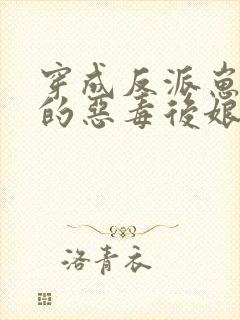 穿成反派崽
的惡毒後娘
洛青衣